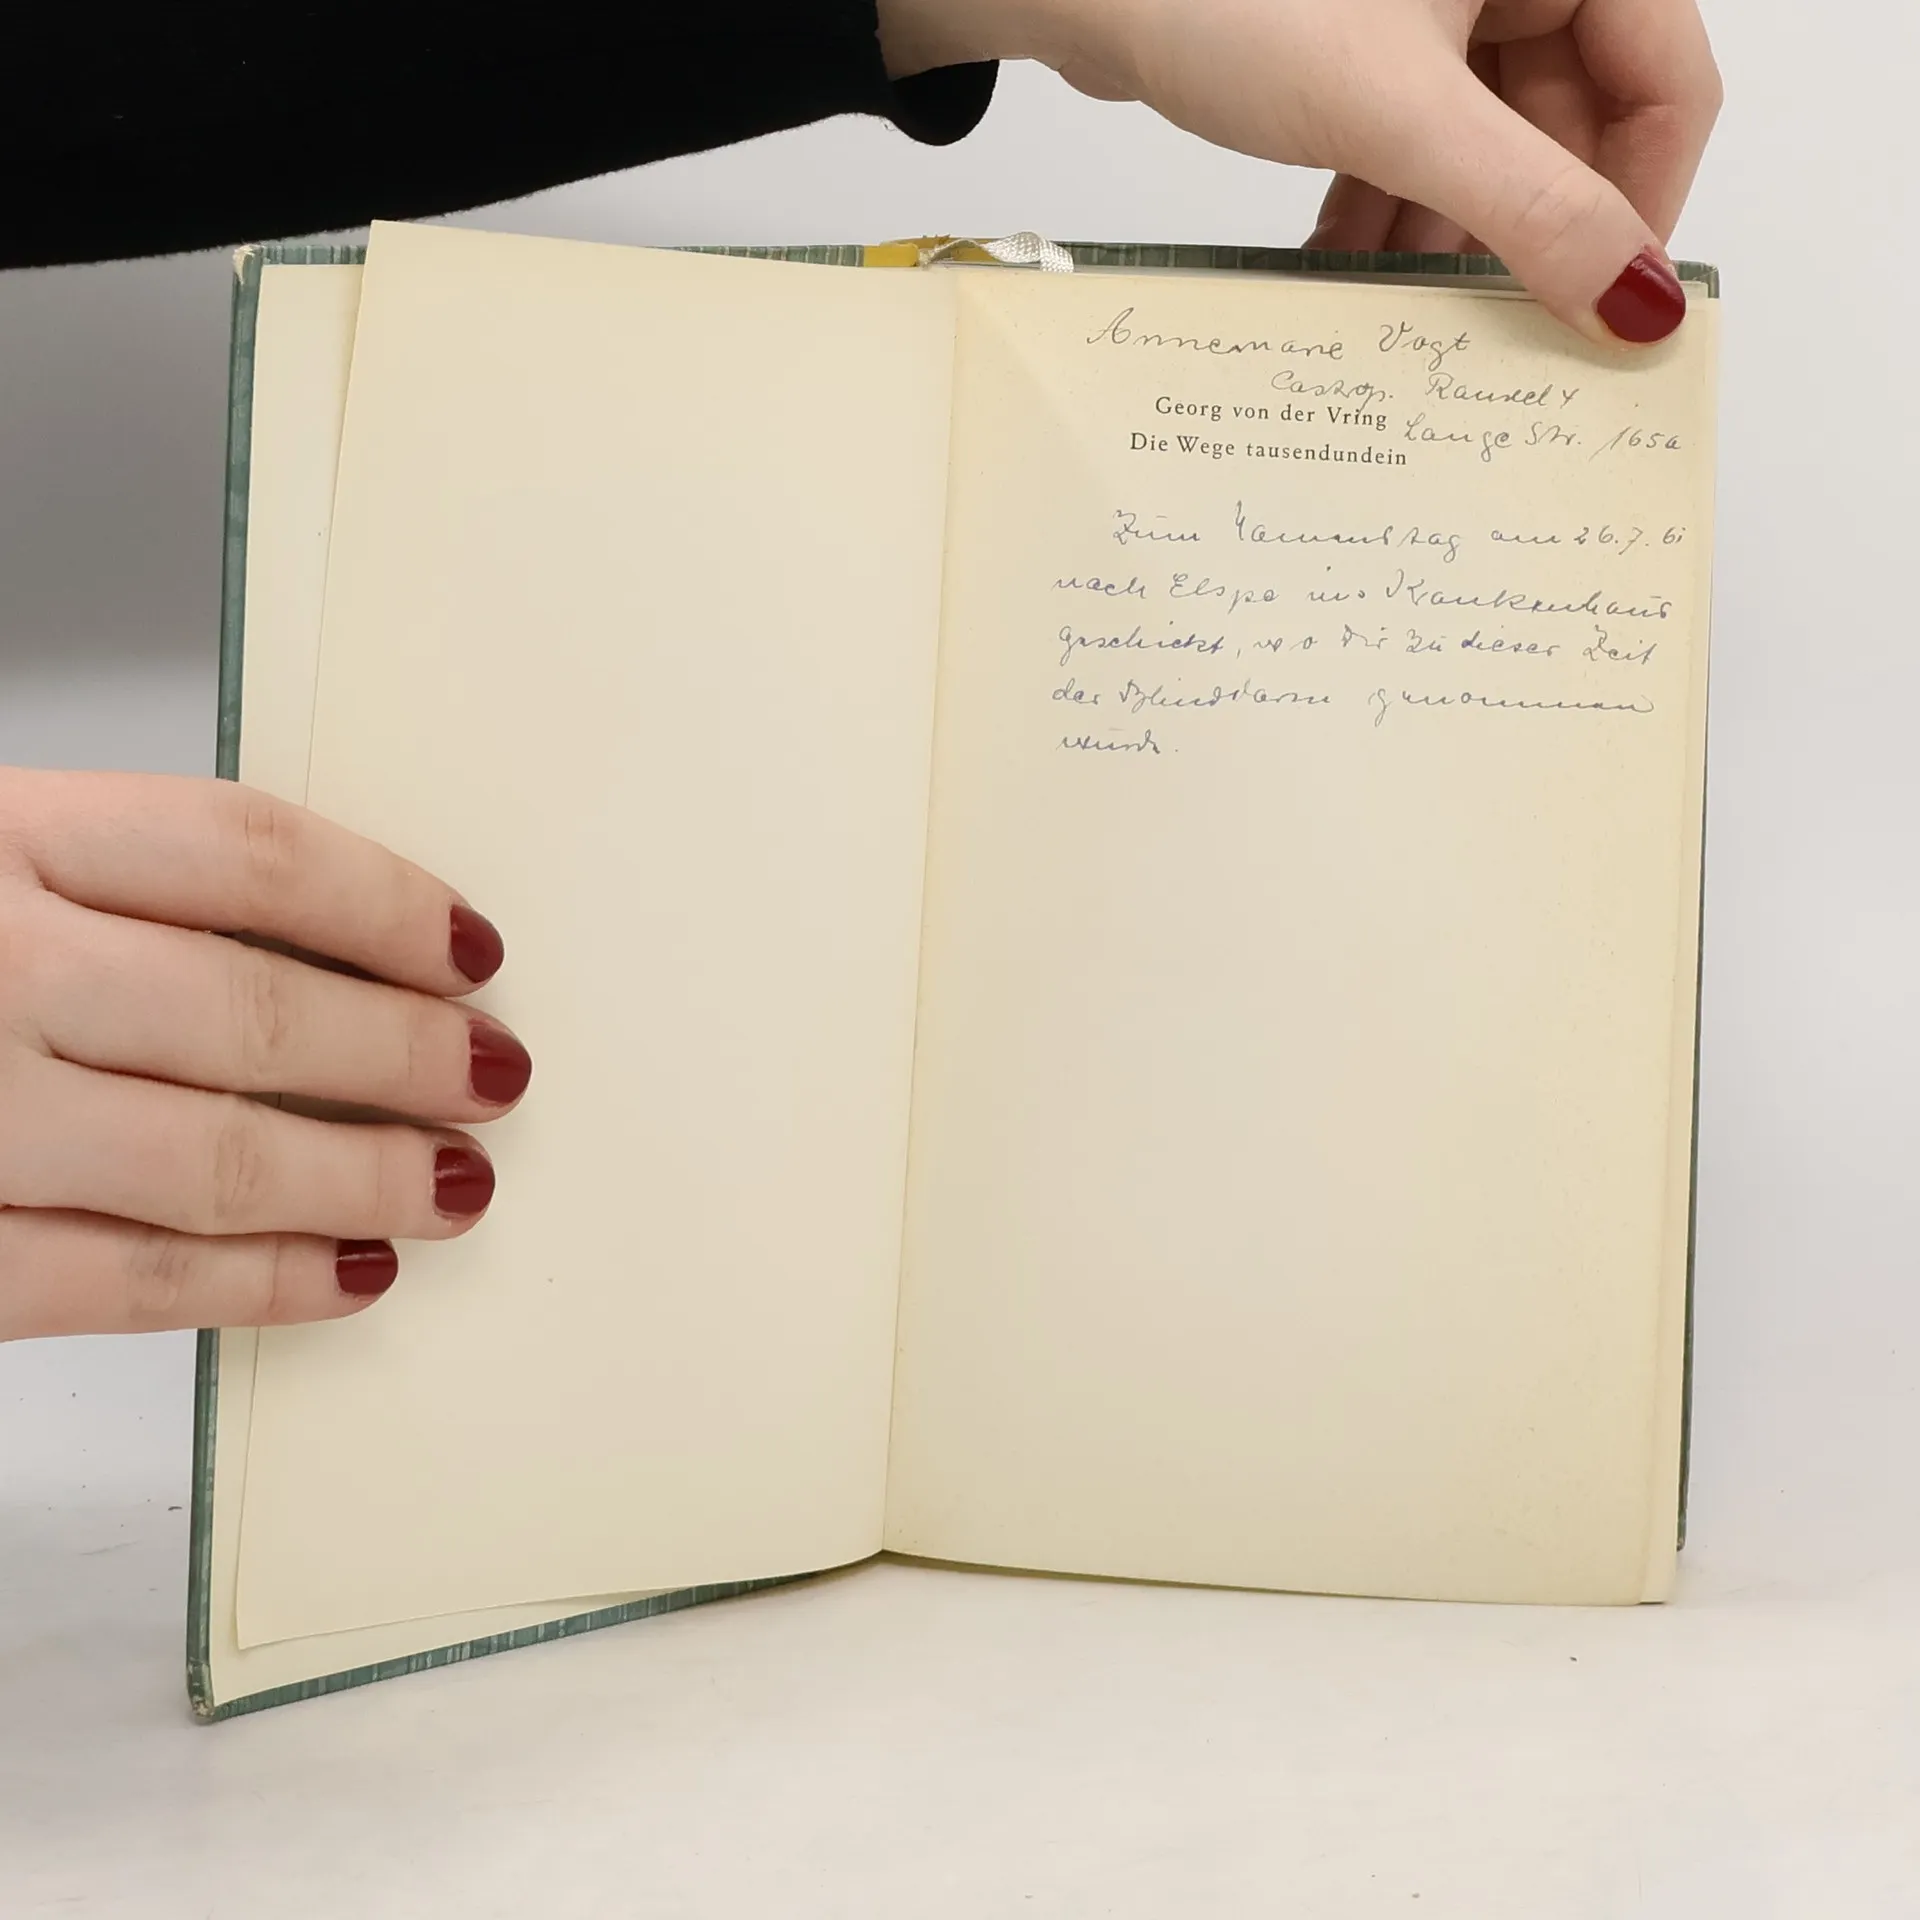 Annemarie Vogt
Castrop. Rauxel 4
Georg von der Vring
Lange Str. 165a
Die Wege tausendundein
Zum Namenstag am 26.7.61
nach Elspe ins Krankenhaus
geschickt, wo Dir zu dieser Zeit
der Blinddarm genommen
wurde.